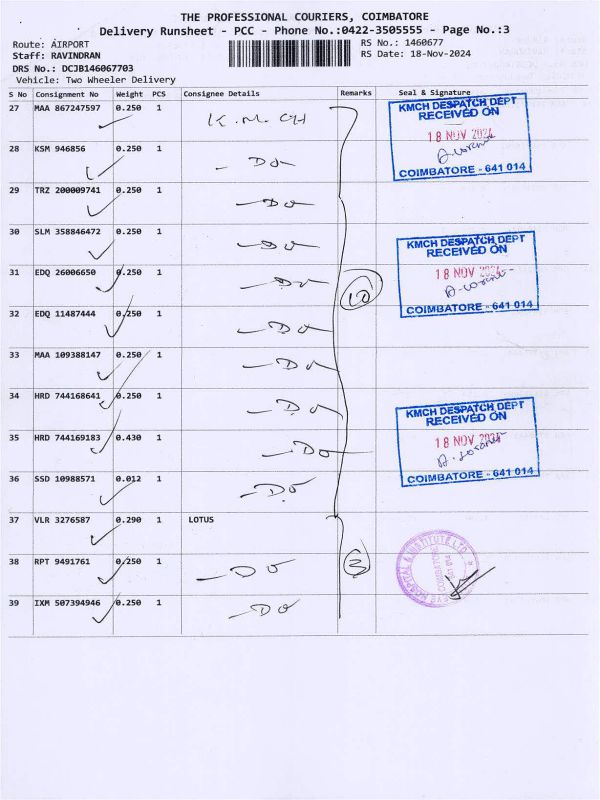 THE PROFESSIONAL COURIERS, COIMBATORE
Delivery Runsheet - PCC - Phone No.:0422-3505555 - Page No.:3
Route: AIRPORT
RS No.: 1460677
Staff: RAVINDRAN
RS Date: 18-Nov-2024
DRS No.: DCJB146067703
Vehicle: Two Wheeler Delivery
S No Consignment No Weight PCS Consignee Details Remarks Seal & Signature
27 MAA 867247597 0.250 1 K.M.CH
28 KSM 946856 0.250 1 - Do -
29 TRZ 200009741 0.250 1 - Do -
30 SLM 358846472 0.250 1 - Do -
31 EDQ 26006650 0.250 1 - Do -
32 EDQ 11487444 0.250 1 - Do -
33 MAA 109388147 0.250 1 - Do -
34 HRD 744168641 0.250 1 - Do -
35 HRD 744169183 0.430 1 - Do -
36 SSD 10988571 0.012 1 - Do -
37 VLR 3276587 0.290 1 LOTUS
38 RPT 9491761 0.250 1 - Do
39 IXM 507394946 0.250 1 - Do
10
3
KMCH DESPATCH DEPT
RECEIVED ON
18 NOV 2024
COIMBATORE - 641 014
KMCH DESPATCH DEPT
RECEIVED ON
18 NOV 2024
COIMBATORE - 641 014
KMCH DESPATCH DEPT
RECEIVED ON
18 NOV 2024
COIMBATORE - 641 014
EYE HOSPITAL & INSTITUTE LTD.
COIMBATORE
641 014